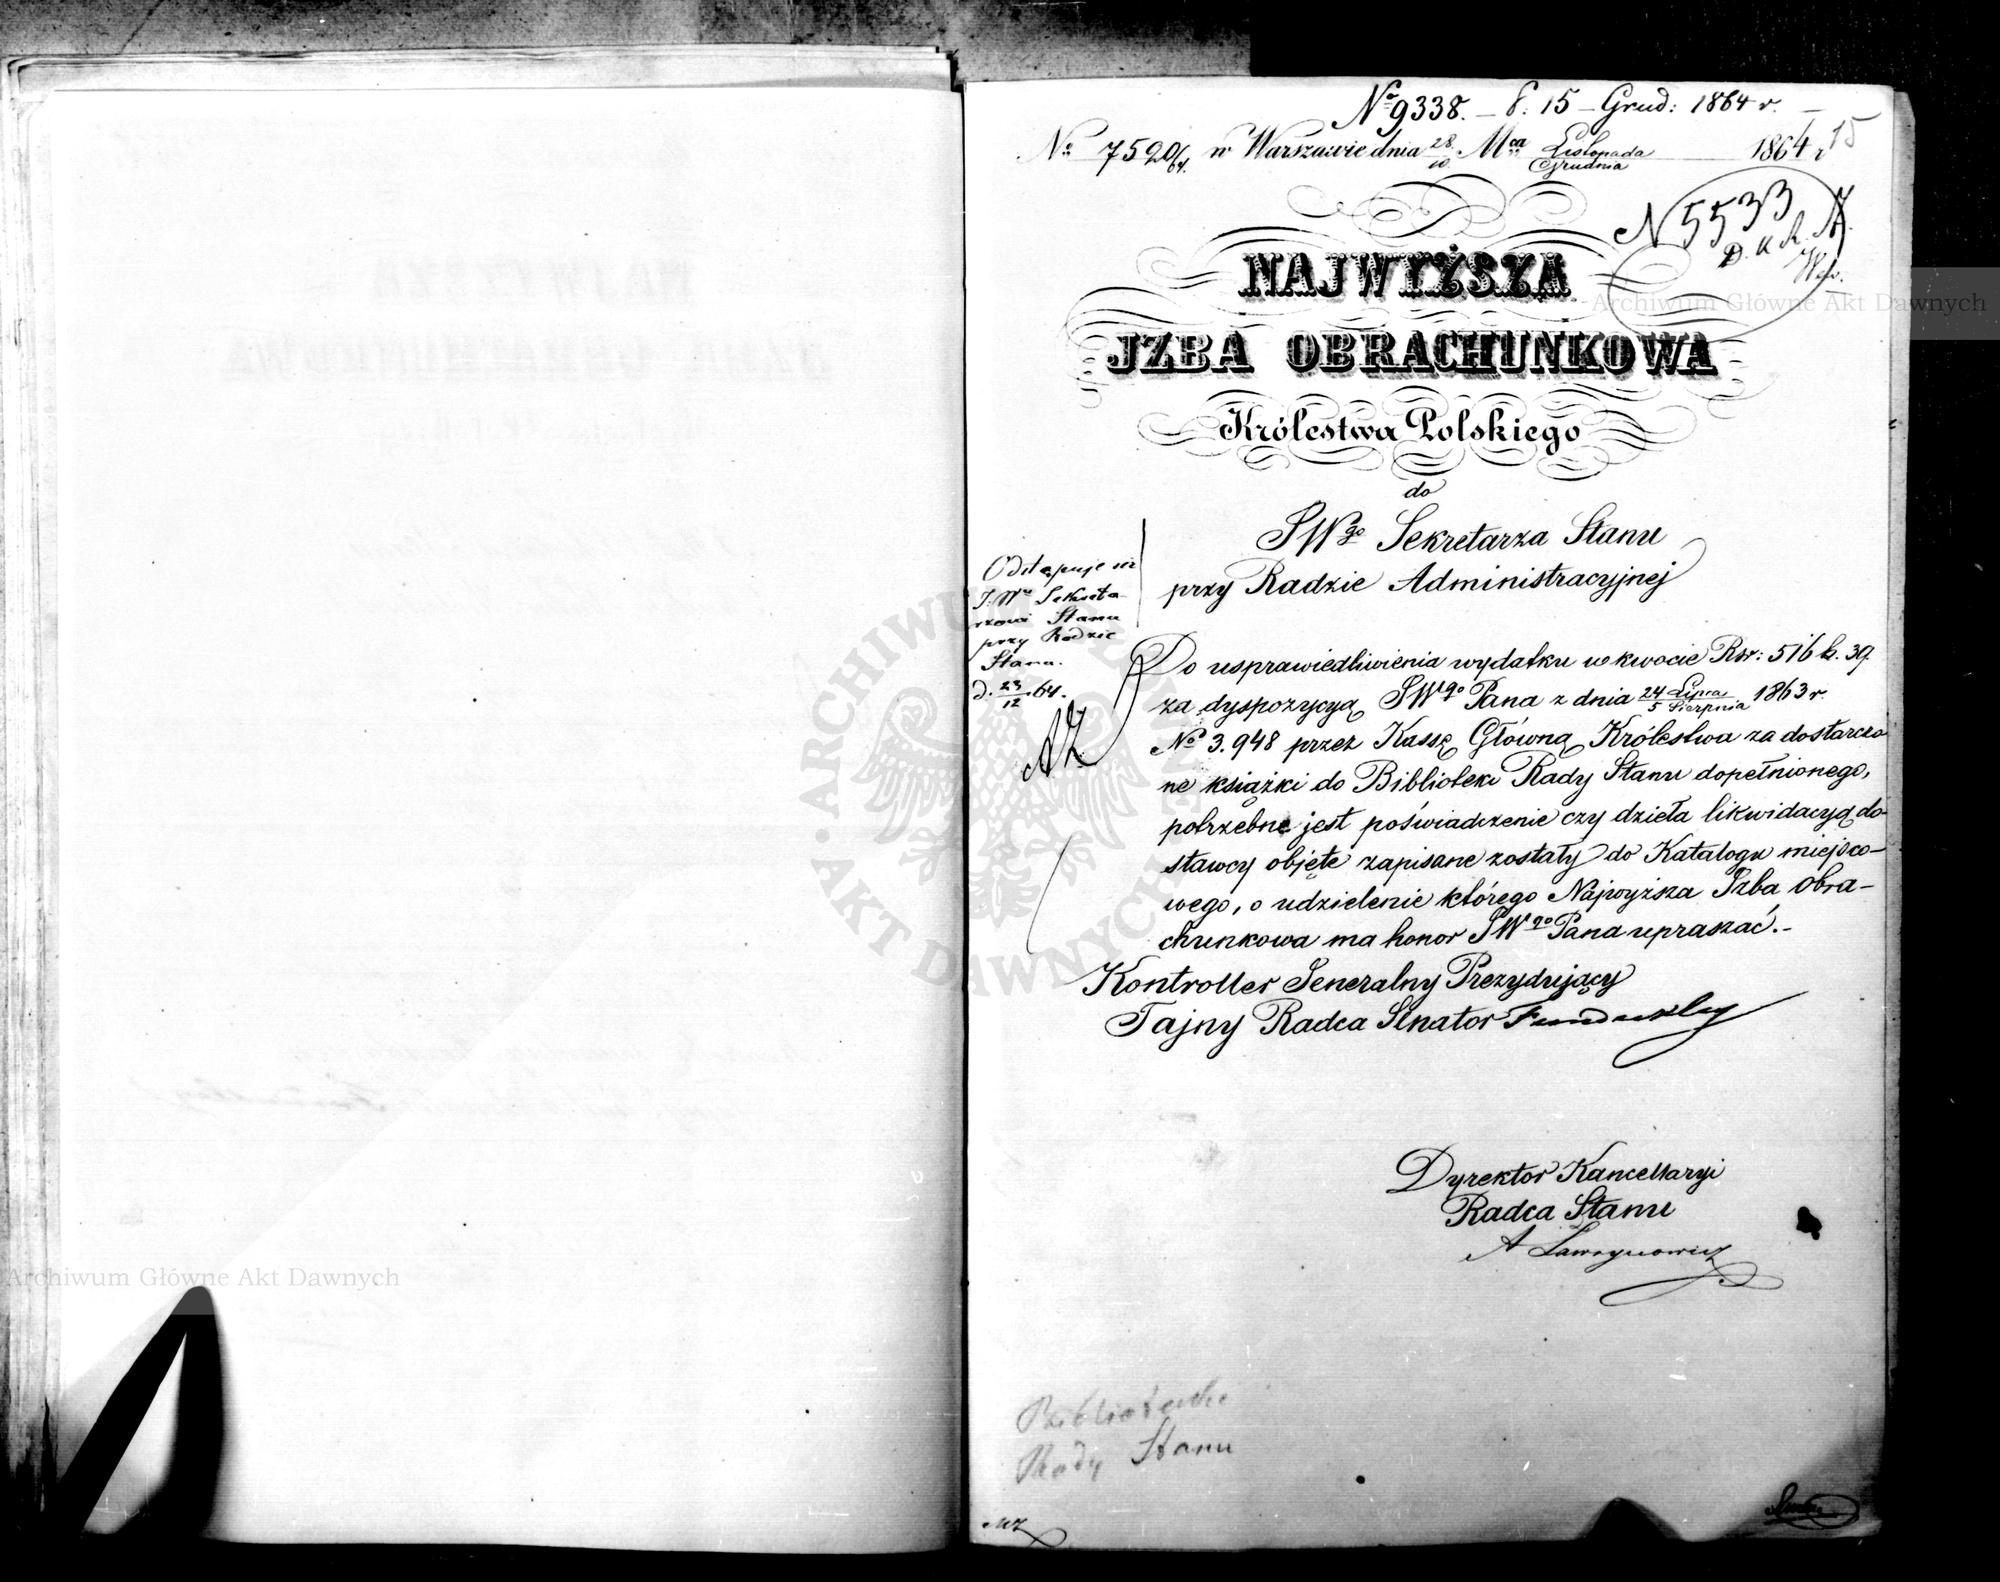 № 9338. – d: 15 – Grud: 1864 r. –
№ 7520/64. w Warszawie dnia 28/10 Mca Listopada/Grudnia 1864 r
15
N 5533
D. K. R. A.
NAJWYŻSZA
JZBA OBRACHUNKOWA
Królestwa Polskiego
do
JWgo Sekretarza Stanu
przy Radzie Administracyjnej
Odstępuje się
J. Wu Sekreta-
rzowi Stanu
przy Radzie
Stanu.
d. 23/12 64.
Do usprawiedliwienia wydatku w kwocie Rsr: 516 k. 39.
za dyspozycyą JWgo Pana z dnia 24 Lipca/5 Sierpnia 1863 r.
№ 3.948 przez Kassę Główną Królestwa za dostarczo
ne książki do Biblioteki Rady Stanu dopełnionego,
potrzebne jest poświadczenie czy dzieła likwidacyą do-
stawcy objęte zapisane zostały do Katalogu miejsco-
wego, o udzielenie którego Najwyższa Izba Obra-
chunkowa ma honor JWgo Pana upraszać.-
Kontroller Jeneralny Prezydujący
Tajny Radca Senator Fundukley
Dyrektor Kancellaryi
Radca Stanu
A Ławrynowicz
Biblioteka
Rady Stanu
MZ
Archiwum Główne Akt Dawnych
Archiwum Główne Akt Dawnych
ARCHIWUM GŁÓWNE AKT DAWNYCH